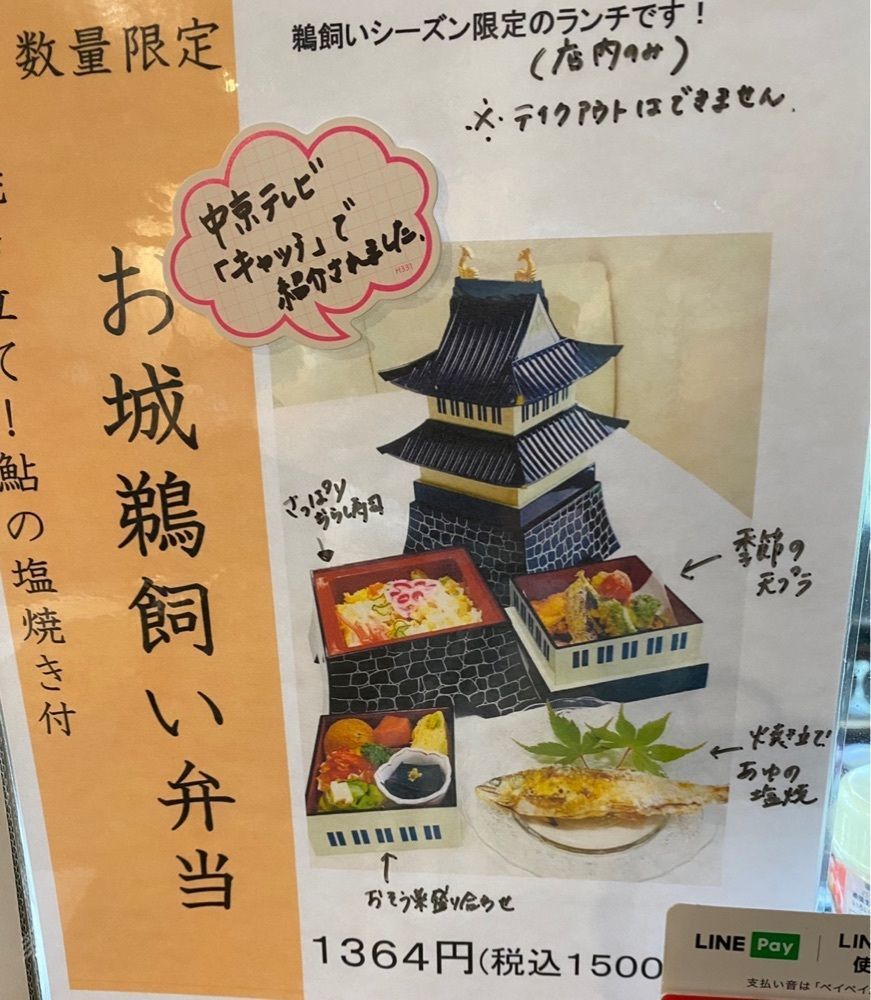 数量限定
鵜飼いシーズン限定のランチです！
(店内のみ)
※テイクアウトはできません.
中京テレビ
「キャッチ」で
紹介されました.
H331
お城鵜飼い弁当
立て！鮎の塩焼き付
さっぱり
ちらし寿司
季節の
天プラ
焼き立て
あゆの
塩焼
おそう菜盛り合わせ
1364円(税込1500
LINE Pay
LIN
使
支払い音は「ペイペイ